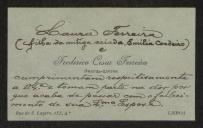 Laura Ferreira
(filha da antiga criada Emilia Cordeiro)
e
Frederico Cesar Ferreira
Guarda-Livros
cumprimentam respeitosamente
a V. Ex.ª e tomam parte na dor por
que acaba de passar com o falleci-
mento de sua Ex.ma Esposa.
LISBOA